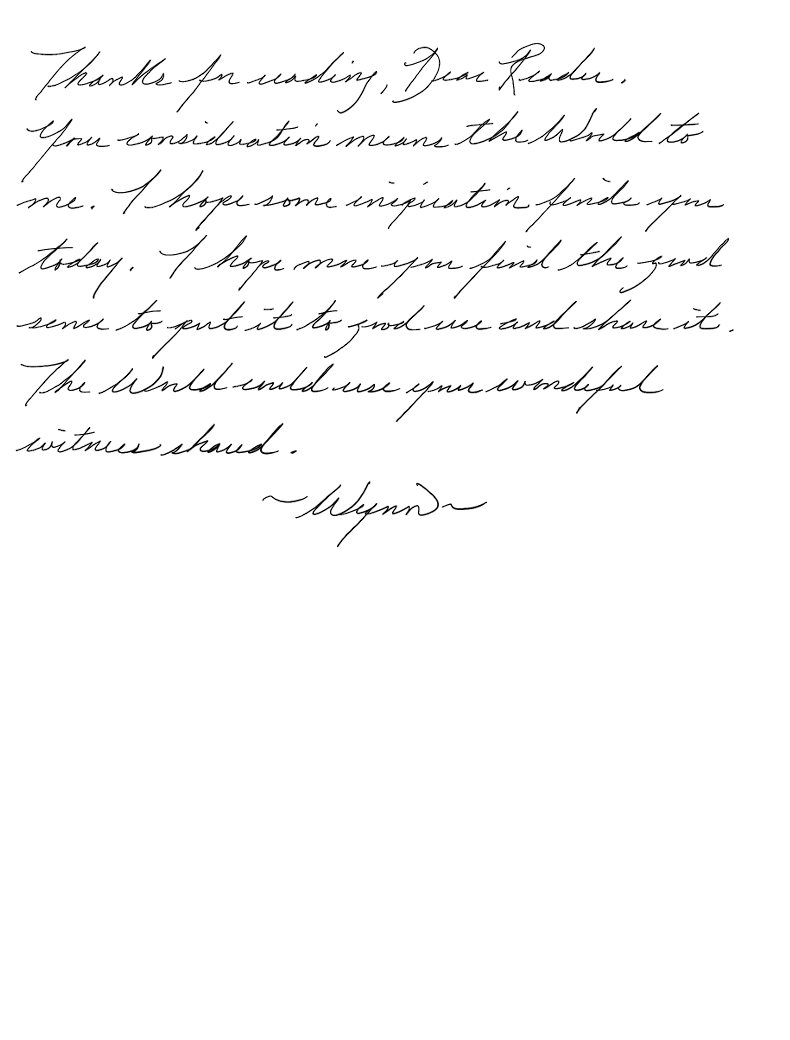 Thanks for reading, Dear Reader.
Your consideration means the World to
me. I hope some inspiration finds you
today. I hope more you find the good
sense to put it to good use and share it.
The World could use your wonderful
witness shared.
~Wynn~